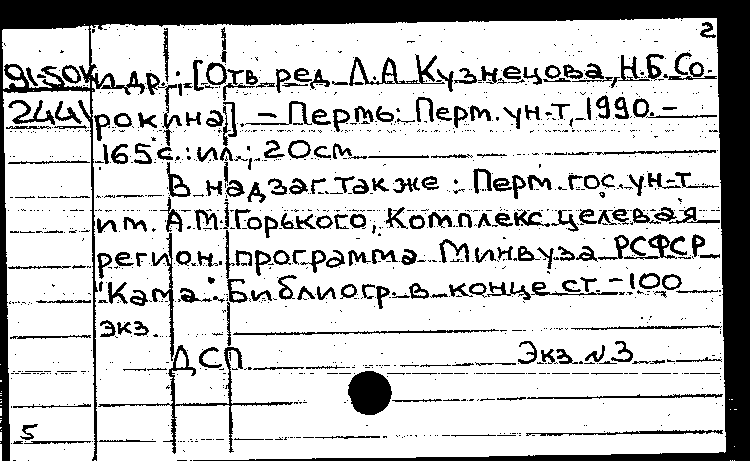 2
91-50к и др.; [Отв ред Л.А Кузнецова, Н.Б.Со-
2441 рокина]. – Пермь: Перм. ун-т, 1990. –
165 с.: ил.; 20см
В надзаг. также: Перм. гос. ун-т
им. А.М. Горького, Комплекс. целевая
регион. программа Минвуза РСФСР
"Кама". Библиогр. в конце ст. – 100
экз.
ДСП Экз №3
5